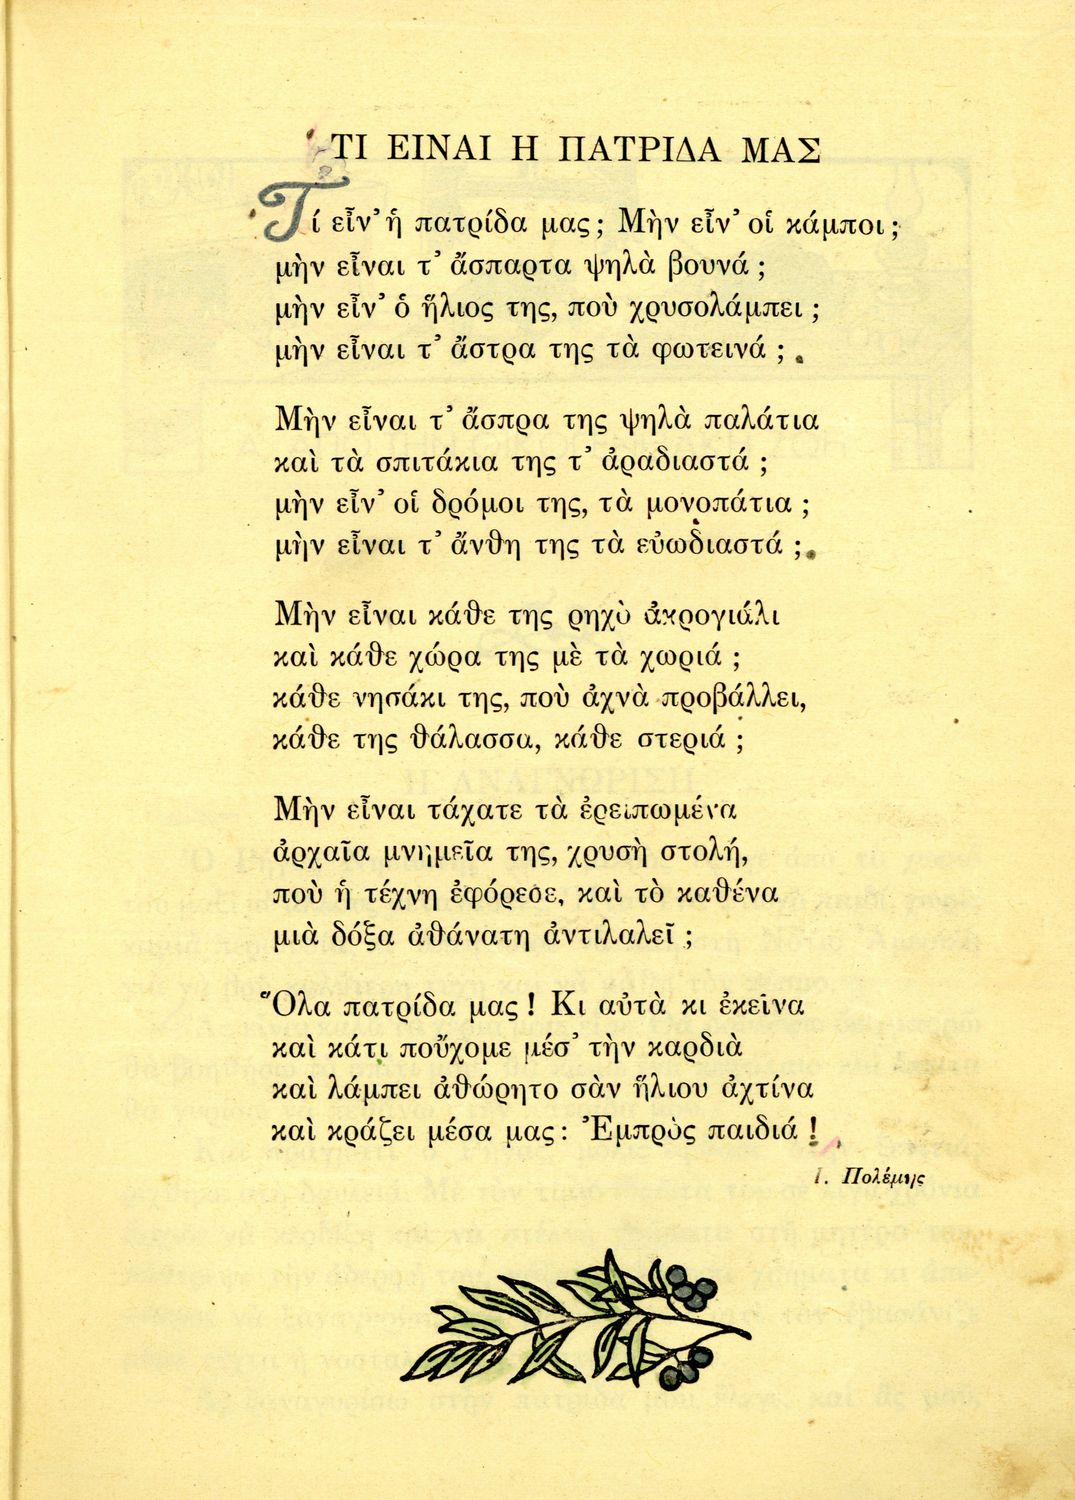 ΤΙ ΕΙΝΑΙ Η ΠΑΤΡΙΔΑ ΜΑΣ
Τί εἶν' ἡ πατρίδα μας; Μὴν εἶν' οἱ κάμποι;
μὴν εἶναι τ' ἄσπαρτα ψηλὰ βουνά;
μὴν εἶν' ὁ ἥλιος της, ποὺ χρυσολάμπει;
μὴν εἶναι τ' ἄστρα της τὰ φωτεινά;
Μὴν εἶναι τ' ἄσπρα της ψηλὰ παλάτια
καὶ τὰ σπιτάκια της τ' ἀραδιαστά;
μὴν εἶν' οἱ δρόμοι της, τὰ μονοπάτια;
μὴν εἶναι τ' ἄνθη της τὰ εὐωδιαστά;
Μὴν εἶναι κάθε της ρηχὸ ἀκρογιάλι
καὶ κάθε χώρα της μὲ τὰ χωριά;
κάθε νησάκι της, ποὺ ἀχνὰ προβάλλει,
κάθε της θάλασσα, κάθε στεριά;
Μὴν εἶναι τάχατε τὰ ἐρειπωμένα
ἀρχαῖα μνημεῖα της, χρυσὴ στολή,
ποὺ ἡ τέχνη ἐφόρεσε, καὶ τὸ καθένα
μιὰ δόξα ἀθάνατη ἀντιλαλεῖ;
Ὅλα πατρίδα μας! Κι αὐτὰ κι ἐκεῖνα
καὶ κάτι ποὔχομε μέσ' τὴν καρδιὰ
καὶ λάμπει ἀθώρητο σὰν ἥλιου ἀχτίνα
καὶ κράζει μέσα μας: Ἐμπρὸς παιδιά!
Ι. Πολέμης